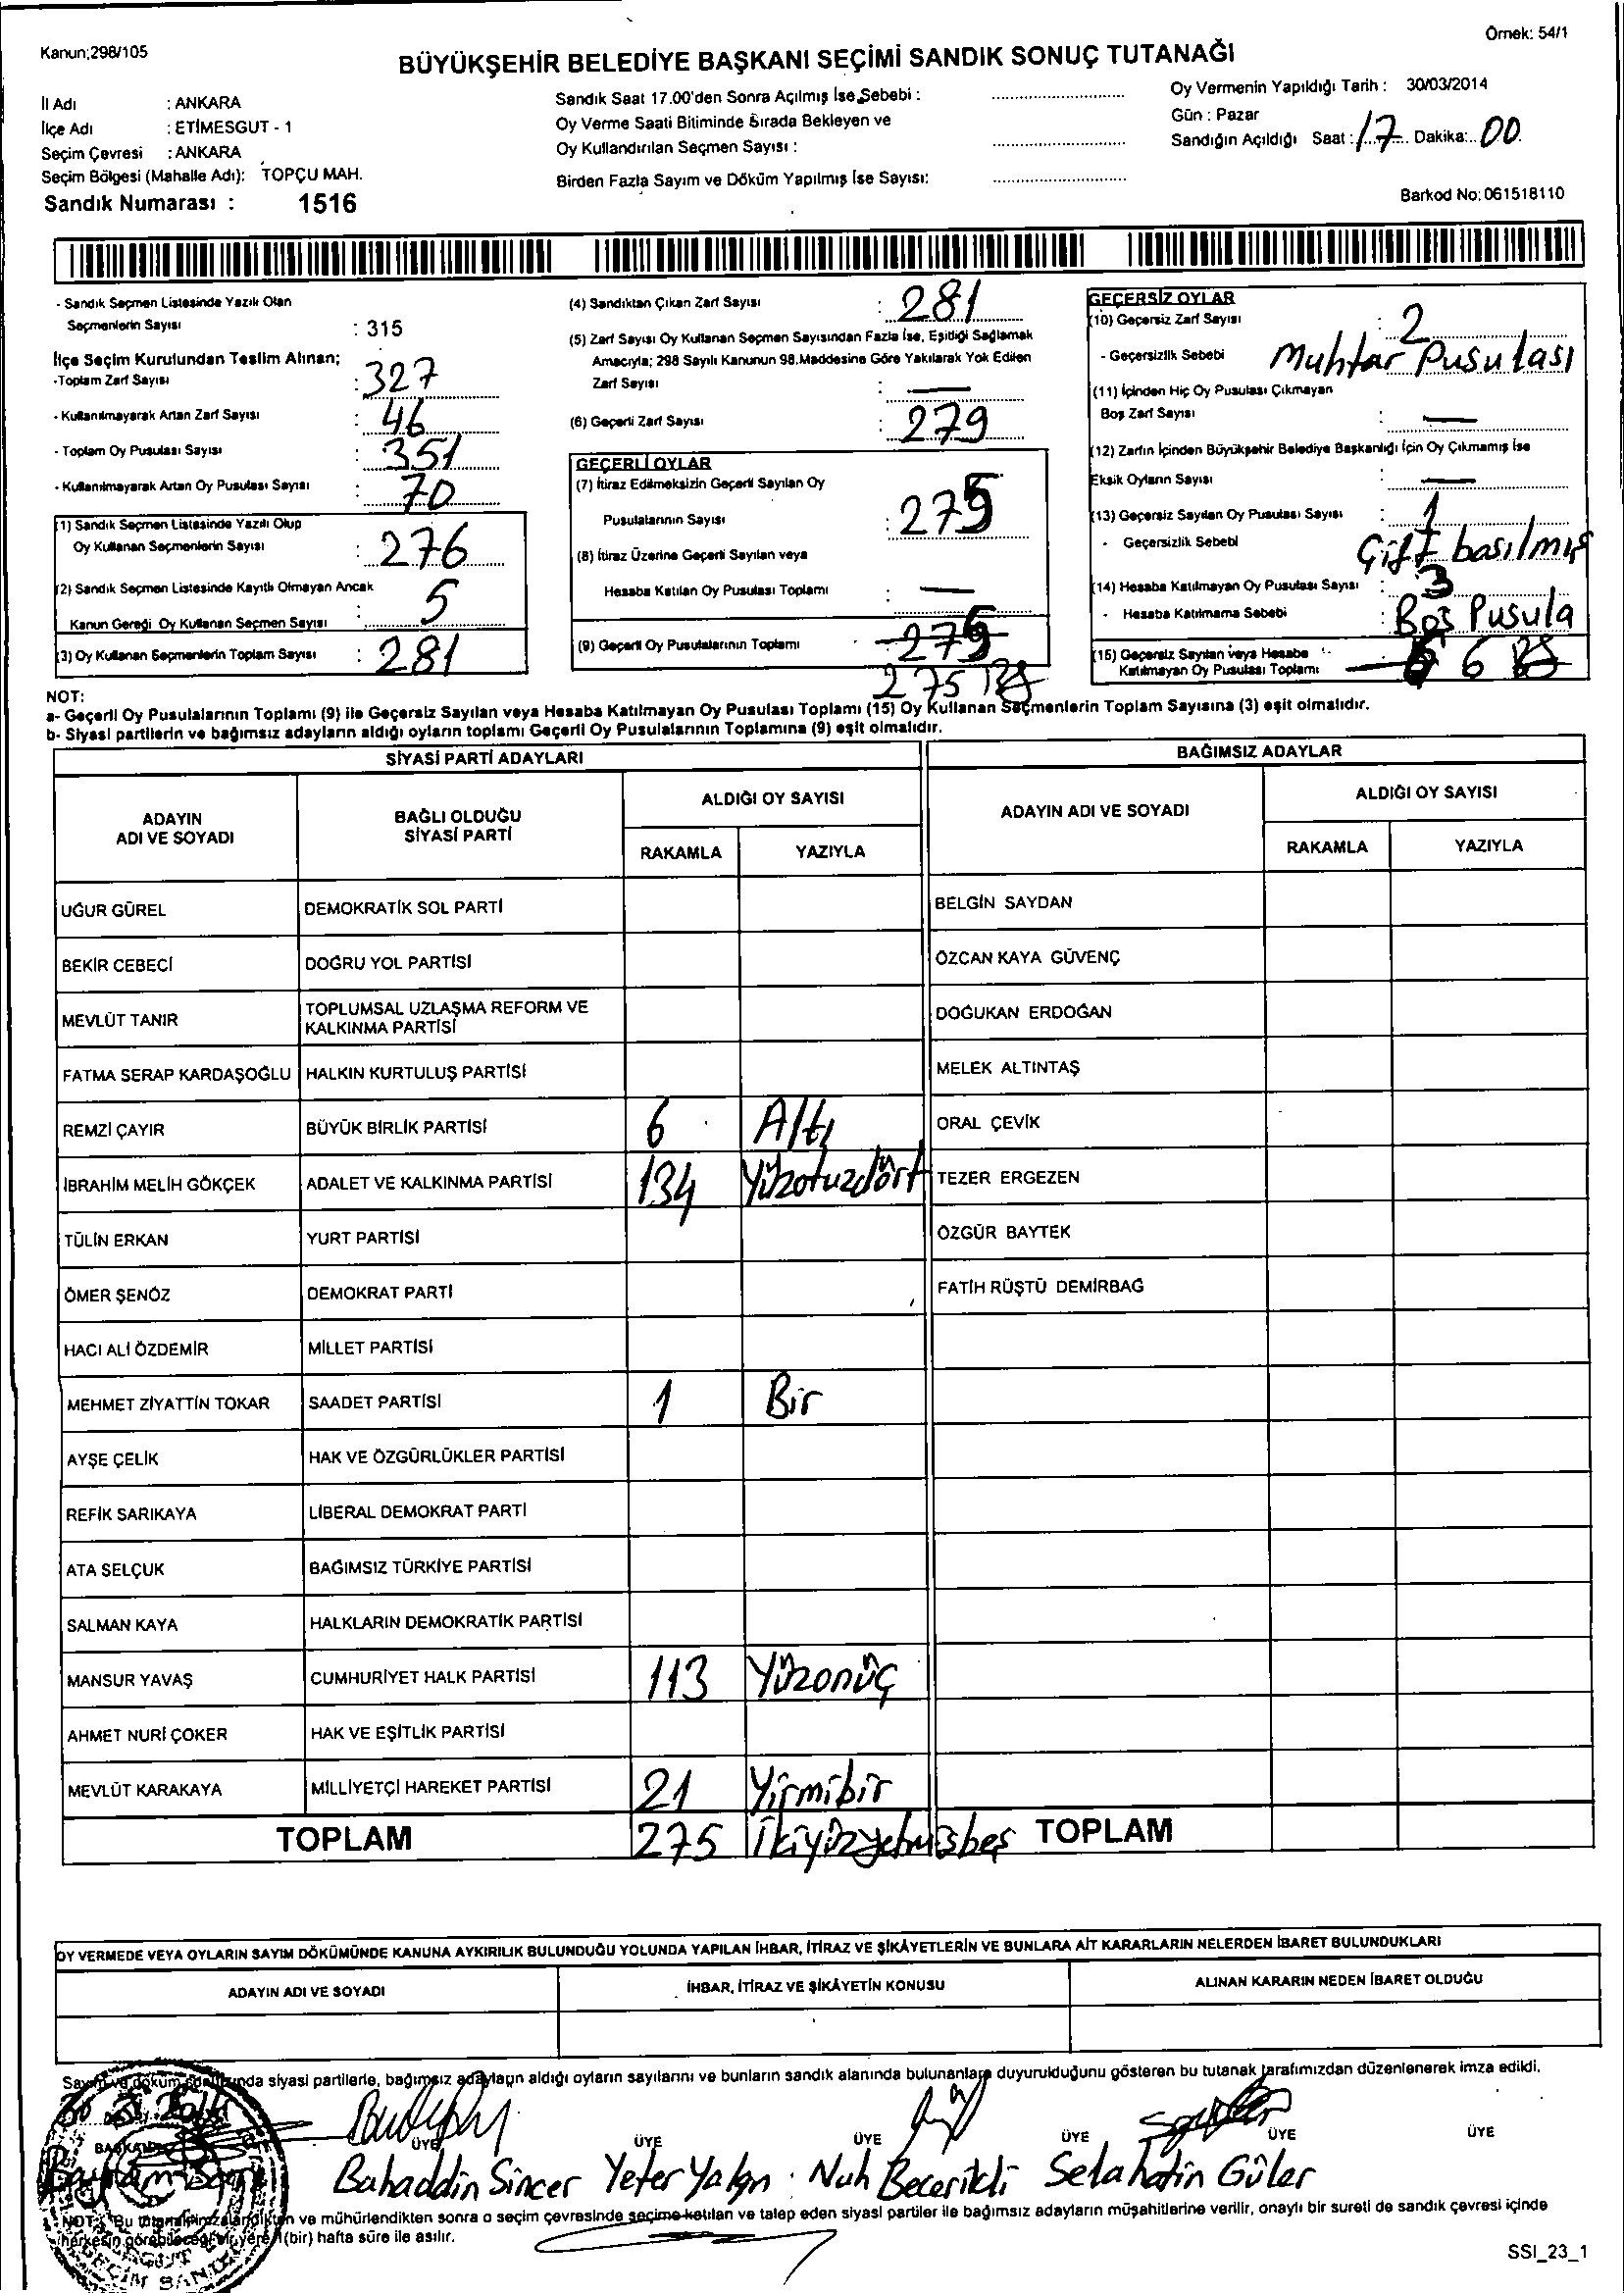 Kanun;298/105
Örnek: 54/1
BÜYÜKŞEHİR BELEDİYE BAŞKANI SEÇİMİ SANDIK SONUÇ TUTANAĞI
İl Adı : ANKARA
İlçe Adı : ETİMESGUT - 1
Seçim Çevresi : ANKARA
Seçim Bölgesi (Mahalle Adı): TOPÇU MAH.
Sandık Numarası : 1516
Sandık Saat 17.00'den Sonra Açılmış İse Sebebi :
Oy Verme Saati Bitiminde Sırada Bekleyen ve
Oy Kullandırılan Seçmen Sayısı :
Birden Fazla Sayım ve Döküm Yapılmış İse Sayısı:
Oy Vermenin Yapıldığı Tarih : 30/03/2014
Gün : Pazar
Sandığın Açıldığı Saat : 17 Dakika: 00
Barkod No: 061518110
- Sandık Seçmen Listesinde Yazılı Olan
Seçmenlerin Sayısı : 315
İlçe Seçim Kurulundan Teslim Alınan;
-Toplam Zarf Sayısı : 327
- Kullanılmayarak Artan Zarf Sayısı : 46
- Toplam Oy Pusulası Sayısı : 351
- Kullanılmayarak Artan Oy Pusulası Sayısı : 70
(1) Sandık Seçmen Listesinde Yazılı Olup
Oy Kullanan Seçmenlerin Sayısı : 276
(2) Sandık Seçmen Listesinde Kayıtlı Olmayan Ancak
Kanun Gereği Oy Kullanan Seçmen Sayısı : 5
(3) Oy Kullanan Seçmenlerin Toplam Sayısı : 281
(4) Sandıktan Çıkan Zarf Sayısı : 281
(5) Zarf Sayısı Oy Kullanan Seçmen Sayısından Fazla İse, Eşitliği Sağlamak
Amacıyla; 298 Sayılı Kanunun 98.Maddesine Göre Yakılarak Yok Edilen
Zarf Sayısı : —
(6) Geçerli Zarf Sayısı : 279
GEÇERLİ OYLAR
(7) İtiraz Edilmeksizin Geçerli Sayılan Oy
Pusulalarının Sayısı : 275
(8) İtiraz Üzerine Geçerli Sayılan veya
Hesaba Katılan Oy Pusulası Toplamı : —
(9) Geçerli Oy Pusulalarının Toplamı : 275
275
GEÇERSİZ OYLAR
(10) Geçersiz Zarf Sayısı : 2
- Geçersizlik Sebebi Muhtar Pusulası
(11) İçinden Hiç Oy Pusulası Çıkmayan
Boş Zarf Sayısı : —
(12) Zarfın İçinden Büyükşehir Belediye Başkanlığı İçin Oy Çıkmamış İse
Eksik Oyların Sayısı : —
(13) Geçersiz Sayılan Oy Pusulası Sayısı : 1
- Geçersizlik Sebebi Çift basılmış
(14) Hesaba Katılmayan Oy Pusulası Sayısı : 3
- Hesaba Katılmama Sebebi : Boş Pusula
(15) Geçersiz Sayılan veya Hesaba
Katılmayan Oy Pusulası Toplamı 6
NOT:
a- Geçerli Oy Pusulalarının Toplamı (9) ile Geçersiz Sayılan veya Hesaba Katılmayan Oy Pusulası Toplamı (15) Oy Kullanan Seçmenlerin Toplam Sayısına (3) eşit olmalıdır.
b- Siyasi partilerin ve bağımsız adayların aldığı oyların toplamı Geçerli Oy Pusulalarının Toplamına (9) eşit olmalıdır.
SİYASİ PARTİ ADAYLARI
BAĞIMSIZ ADAYLAR
ADAYIN ADI VE SOYADI
BAĞLI OLDUĞU SİYASİ PARTİ
ALDIĞI OY SAYISI
RAKAMLA YAZIYLA
ADAYIN ADI VE SOYADI
ALDIĞI OY SAYISI
RAKAMLA YAZIYLA
UĞUR GÜREL DEMOKRATİK SOL PARTİ BELGİN SAYDAN
BEKİR CEBECİ DOĞRU YOL PARTİSİ ÖZCAN KAYA GÜVENÇ
MEVLÜT TANIR TOPLUMSAL UZLAŞMA REFORM VE KALKINMA PARTİSİ DOĞUKAN ERDOĞAN
FATMA SERAP KARDAŞOĞLU HALKIN KURTULUŞ PARTİSİ MELEK ALTINTAŞ
REMZİ ÇAYIR BÜYÜK BİRLİK PARTİSİ 6 Altı ORAL ÇEVİK
İBRAHİM MELİH GÖKÇEK ADALET VE KALKINMA PARTİSİ 134 Yüzotuzdört TEZER ERGEZEN
TÜLİN ERKAN YURT PARTİSİ ÖZGÜR BAYTEK
ÖMER ŞENÖZ DEMOKRAT PARTİ FATİH RÜŞTÜ DEMİRBAĞ
HACI ALİ ÖZDEMİR MİLLET PARTİSİ
MEHMET ZİYATTİN TOKAR SAADET PARTİSİ 1 Bir
AYŞE ÇELİK HAK VE ÖZGÜRLÜKLER PARTİSİ
REFİK SARIKAYA LİBERAL DEMOKRAT PARTİ
ATA SELÇUK BAĞIMSIZ TÜRKİYE PARTİSİ
SALMAN KAYA HALKLARIN DEMOKRATİK PARTİSİ
MANSUR YAVAŞ CUMHURİYET HALK PARTİSİ 113 Yüzonüç
AHMET NURİ ÇOKER HAK VE EŞİTLİK PARTİSİ
MEVLÜT KARAKAYA MİLLİYETÇİ HAREKET PARTİSİ 21 Yirmibir
TOPLAM 275 İkiyüzyetmişbeş TOPLAM
OY VERMEDE VEYA OYLARIN SAYIM DÖKÜMÜNDE KANUNA AYKIRILIK BULUNDUĞU YOLUNDA YAPILAN İHBAR, İTİRAZ VE ŞİKÂYETLERİN VE BUNLARA AİT KARARLARIN NELERDEN İBARET BULUNDUKLARI
ADAYIN ADI VE SOYADI İHBAR, İTİRAZ VE ŞİKÂYETİN KONUSU ALINAN KARARIN NEDEN İBARET OLDUĞU
Sayım ve döküm siyasi partilerle, bağımsız adayların aldığı oyların sayılarını ve bunların sandık alanında bulunanlara duyurulduğunu gösteren bu tutanak tarafımızdan düzenlenerek imza edildi.
BAŞKAN ÜYE ÜYE ÜYE ÜYE ÜYE ÜYE
Bahaddin Sincer Yeter Yalçın Nuh Becerikli Selahatin Güler
NOT: Bu ve mühürlendikten sonra o seçim çevresinde seçime katılan ve talep eden siyasi partiler ile bağımsız adayların müşahitlerine verilir, onaylı bir sureti de sandık çevresi içinde
herkesin görebileceği bir yere 1(bir) hafta süre ile asılır.
SSI_23_1